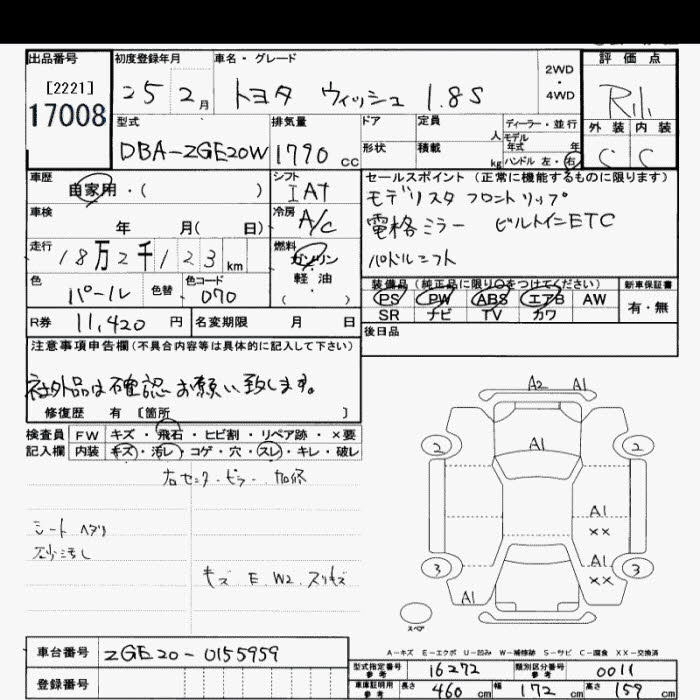 出品番号 初度登録年月 車名・グレード 評価点
[2221] 25 2月 トヨタ ウィッシュ 1.8S 2WD・4WD
17008 外装 内装
C C
型式 排気量 ドア 定員 人 ディーラー・並行
DBA-ZGE20W 1790cc 形状 積載 kg モデル年式 年
ハンドル 左・右
車歴 シフト セールスポイント (正常に機能するものに限ります)
自家用・( ) IAT モデリスタ フロントリップ
車検 冷房 電格ミラー ビルトインETC
年 月( 日) A/C パドルシフト
走行 燃料
18万2千123km ガソリン
軽・油
( )
色 色替 色コード 装備品 (純正品に限り○をつけてください) 新車保証書
パール 070 PS PW ABS エアB AW 有・無
SR ナビ TV カワ
R券 11,420円 名変期限 月 日 後日品
注意事項申告欄(不具合内容等は具体的に記入して下さい)
社外品は確認お願い致します。
修復歴 有 [箇所 ]
検査員 FW キズ・飛石・ヒビ割・リペア跡・×要
記入欄 内装 キズ・汚レ・コゲ・穴・スレ・キレ・破レ
シート ヘタリ
キズ E W2 スリキズ
A2 A1
2 A1 2
A1
XX
A1
3 XX 3
A1
スペア
A-キズ E-エクボ U-凹み W-補修跡 S-サビ C-腐食 XX-交換済
車台番号 ZGE20-0155959
登録番号
型式指定番号参考 16272 類別区分番号参考 0011
車庫証明用参考 長さ 460cm 幅 172cm 高さ 159cm